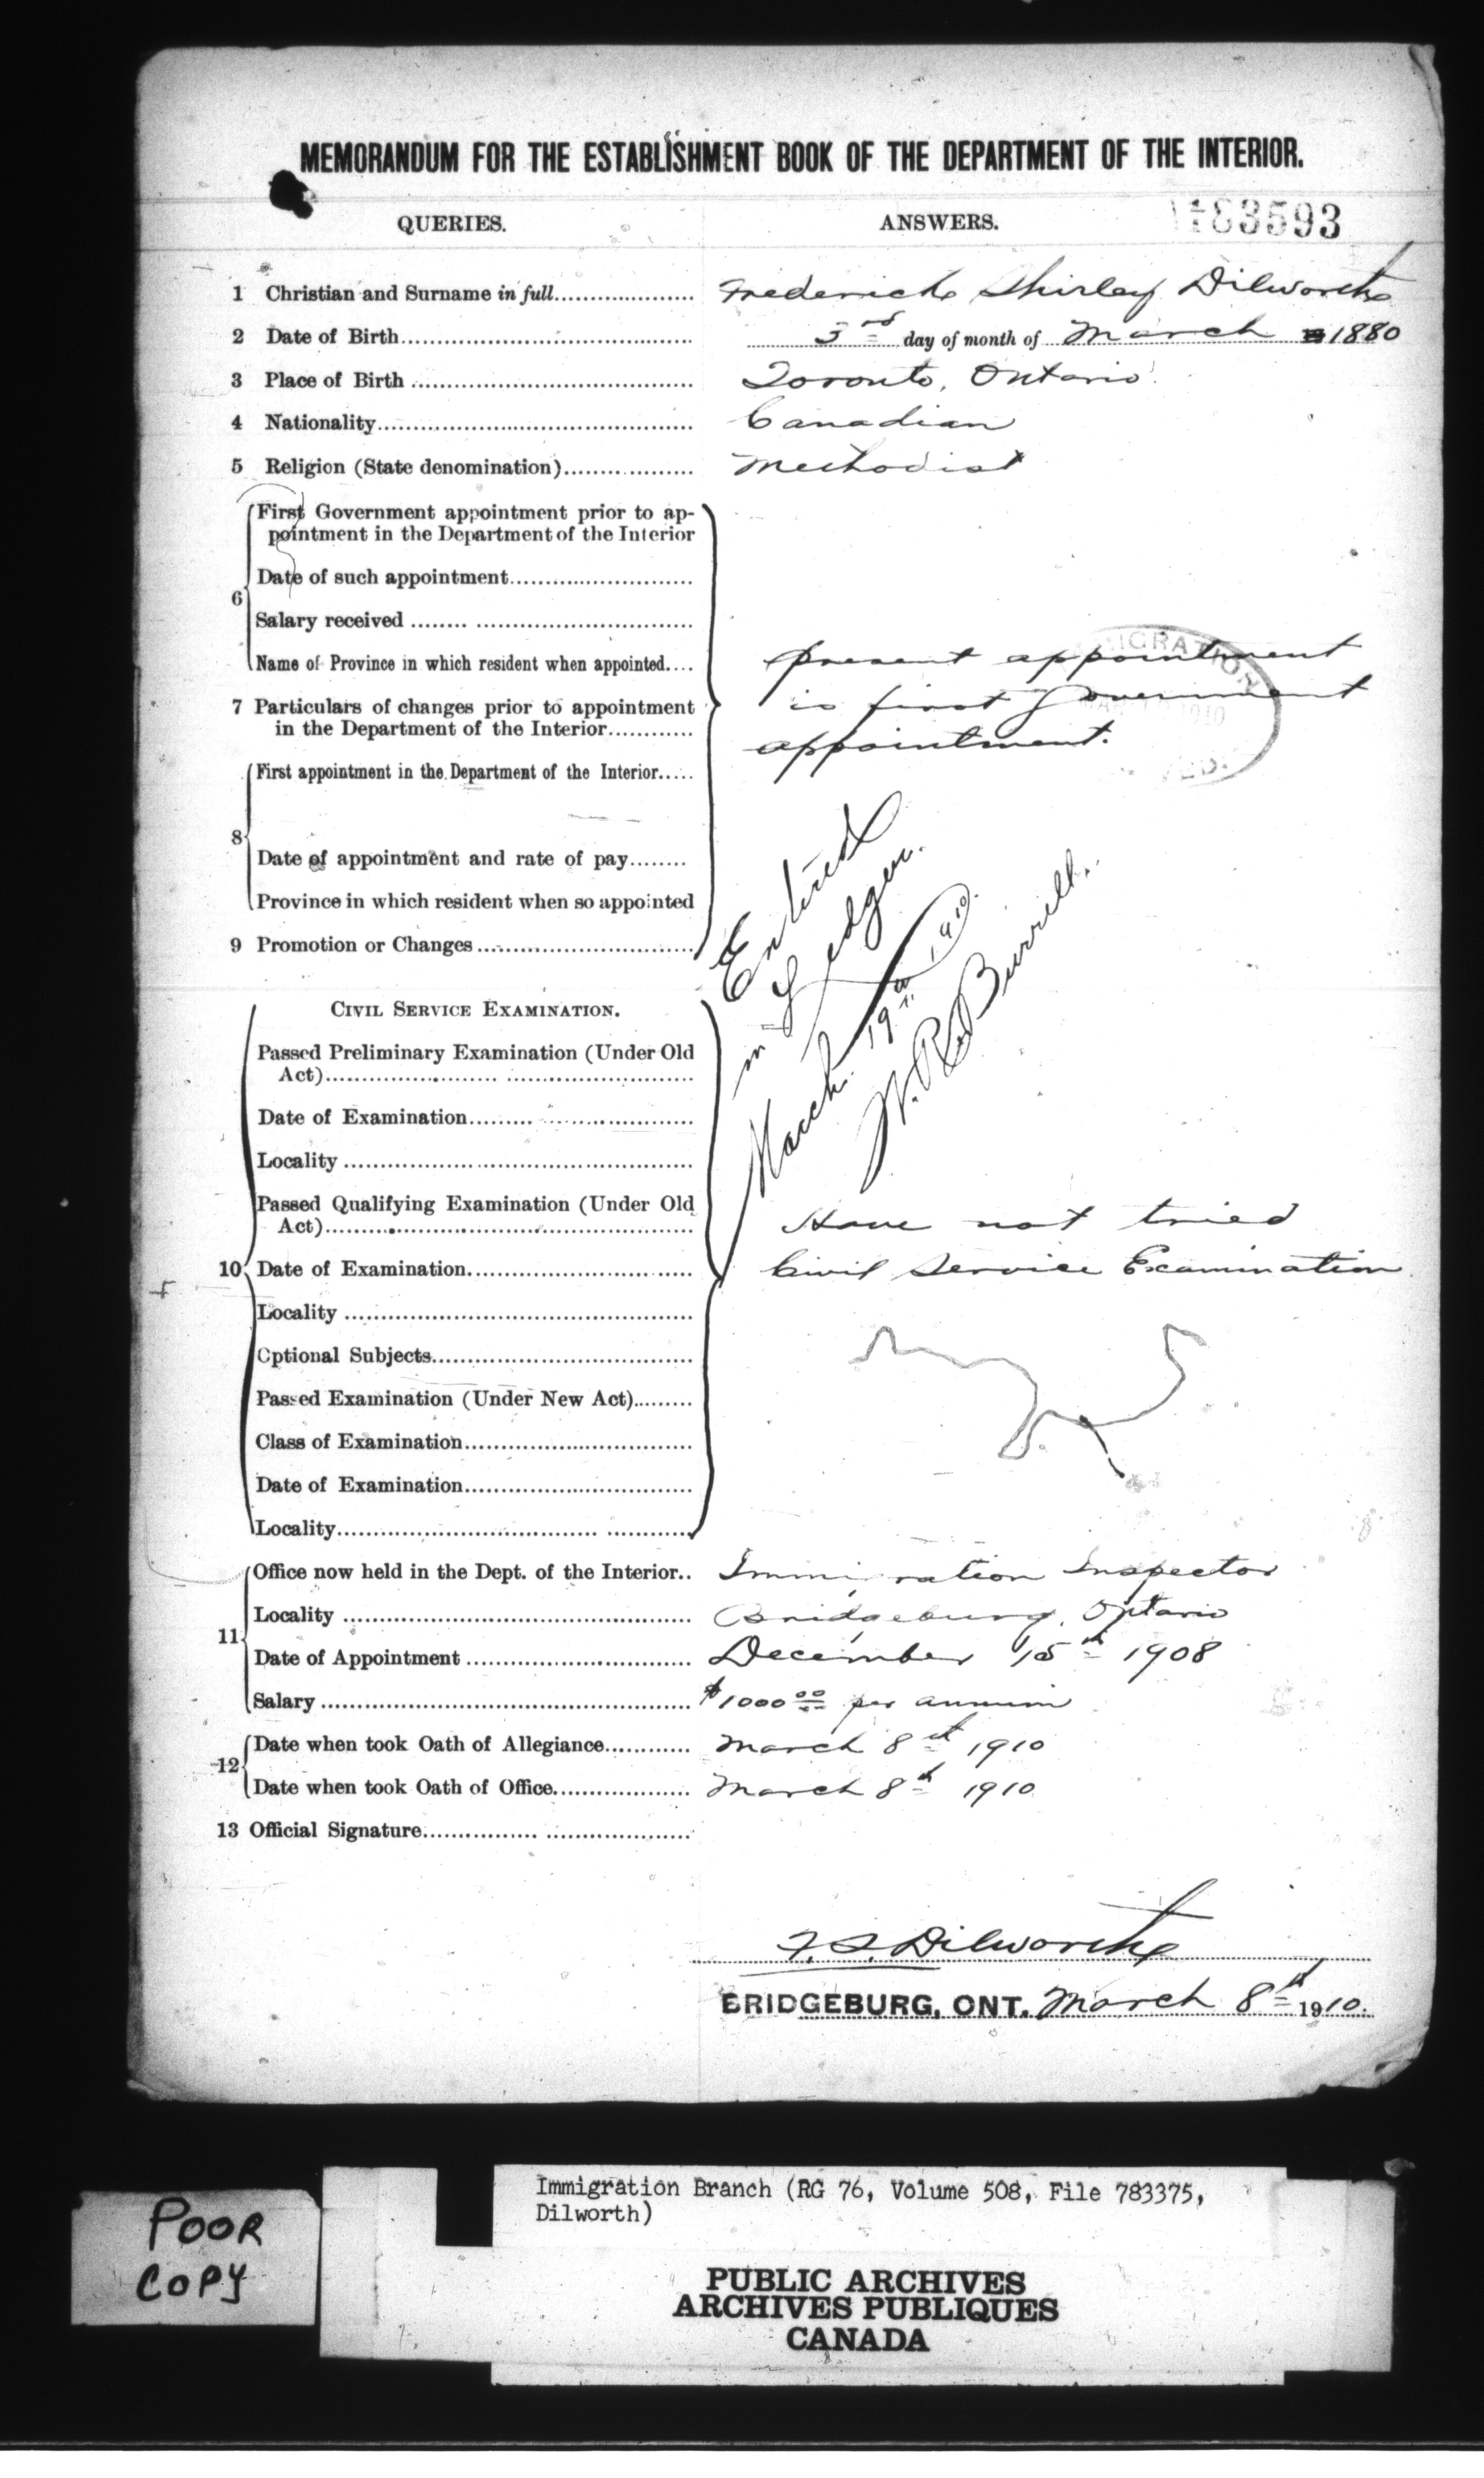 MEMORANDUM FOR THE ESTABLISHMENT BOOK OF THE DEPARTMENT OF THE INTERIOR.
QUERIES. ANSWERS. 83593
1 Christian and Surname in full Frederick Shirley Dilworth
2 Date of Birth 3rd day of month of March 1880
3 Place of Birth Toronto, Ontario.
4 Nationality Canadian
5 Religion (State denomination) Methodist
First Government appointment prior to ap-
pointment in the Department of the Interior
Date of such appointment
6
Salary received
Name of Province in which resident when appointed
present appointment
is first Government
appointment.
7 Particulars of changes prior to appointment
in the Department of the Interior
First appointment in the Department of the Interior
8
Date of appointment and rate of pay
Province in which resident when so appointed
9 Promotion or Changes
Entered
in Ledger.
March 19th 1910.
W. R. Burrill.
CIVIL SERVICE EXAMINATION.
Passed Preliminary Examination (Under Old
Act)
Date of Examination
Locality
Passed Qualifying Examination (Under Old
Act) Have not tried
10 Date of Examination Civil Service Examination
Locality
Optional Subjects
Passed Examination (Under New Act)
Class of Examination
Date of Examination
Locality
Office now held in the Dept. of the Interior.. Immigration Inspector
Locality Bridgeburg, Ontario
11
Date of Appointment December 15th 1908
Salary $1000 00 per annum
Date when took Oath of Allegiance March 8th 1910
12
Date when took Oath of Office March 8th 1910
13 Official Signature
F. S. Dilworth
BRIDGEBURG, ONT. March 8th 1910.
POOR
COPY
Immigration Branch (RG 76, Volume 508, File 783375,
Dilworth)
PUBLIC ARCHIVES
ARCHIVES PUBLIQUES
CANADA